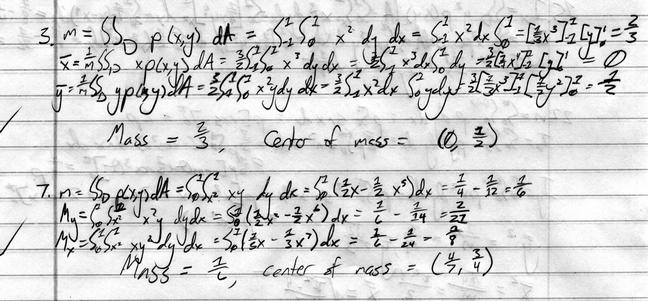 3. m = ∬_D ρ(x,y) dA = ∫_{-1}^{1} ∫_0^1 x² dy dx = ∫_{-1}^{1} x² dx ∫_0^1 = [⅓x³]_{-1}^{1} [y]_0^1 = 2/3
x̄ = 1/m ∬_D xρ(x,y) dA = 3/2 ∫_{-1}^{1} ∫_0^1 x³ dy dx = 3/2 ∫_{-1}^{1} x³ dx ∫_0^1 dy = [y]_0^1 = 0
ȳ = 1/m ∬_D yρ(x,y) dA = 3/2 ∫_{-1}^{1} ∫_0^1 x² y dy dx = 3/2 ∫_{-1}^{1} x² dx ∫_0^1 y dy = 3/2 [⅓x³]_{-1}^{1} [½y²]_0^1 = 1/2
Mass = 2/3, Center of mass = (0, 1/2)
7. m = ∬_D ρ(x,y) dA = ∫_0^1 ∫_{x²}^1 xy dy dx = ∫_0^1 (½x - ½x⁵) dx = 1/4 - 1/12 = 1/6
M_y = ∫_0^1 ∫_{x²}^1 x²y dy dx = ∫_0^1 (½x² - ½x⁶) dx = 1/6 - 1/14 = 2/21
M_x = ∫_0^1 ∫_{x²}^1 xy² dy dx = ∫_0^1 (⅓x - ⅓x⁷) dx = 1/6 - 1/24 = 1/8
Mass = 1/6, center of mass = (4/7, 3/4)